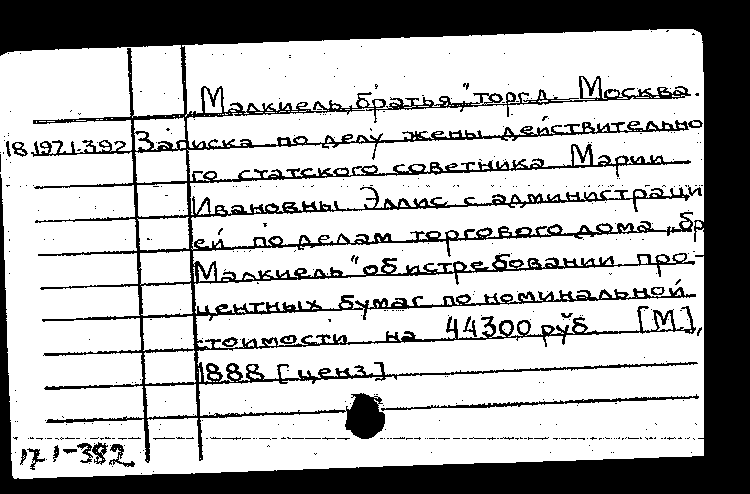 „Малкиель, братья," торг.д. Москва.
18.197.1.392 Записка по делу жены действительно
го статского советника Марии
Ивановны Эллис с администраци
ей по делам торгового дома „бр
Малкиель" об истребовании про-
центных бумаг по номинальной
стоимости на 44300 руб. [М.],
1888 [ценз.].
17 1-382